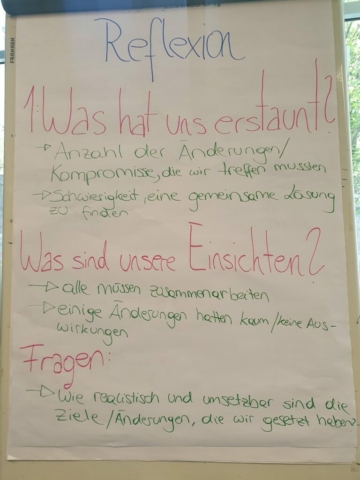 Reflexion
1. Was hat uns erstaunt?
→ Anzahl der Änderungen/
Kompromisse, die wir treffen mussten
→ Schwierigkeit, eine gemeinsame Lösung
zu finden
Was sind unsere Einsichten?
→ alle müssen zusammenarbeiten
→ einige Änderungen hatten kaum/keine Aus-
wirkungen
Fragen:
→ Wie realistisch und umsetzbar sind die
Ziele/Änderungen, die wir gesetzt haben?